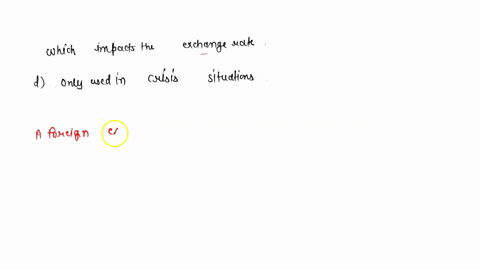 which impacts the exchange rate.
d) only used in crisis situations.
A foreign ex